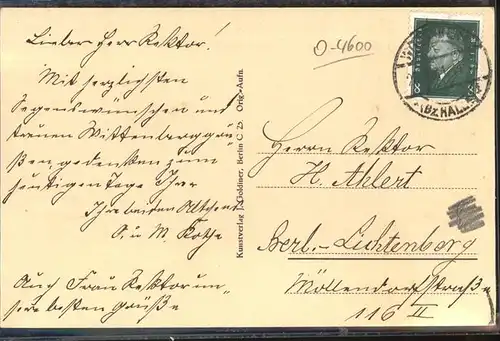 Lieber Herr Rektor!
Mit herzlichsten
Segenswünschen und
treuen Wittenberggrü-
ßen gedenken zum
heutigen Tage Ihrer
Ihre beiden
A. u. M. Kothe
Auch Frau Rektor un-
sere besten Grüße
Kunstverlag J. Goldiner, Berlin C 25. Orig.-Aufn.
O-4600
8 8
(BZ. HALLE
Herrn Rektor
H. Ahlert
Berl.-Lichtenberg
Möllendorfstraße
116 II